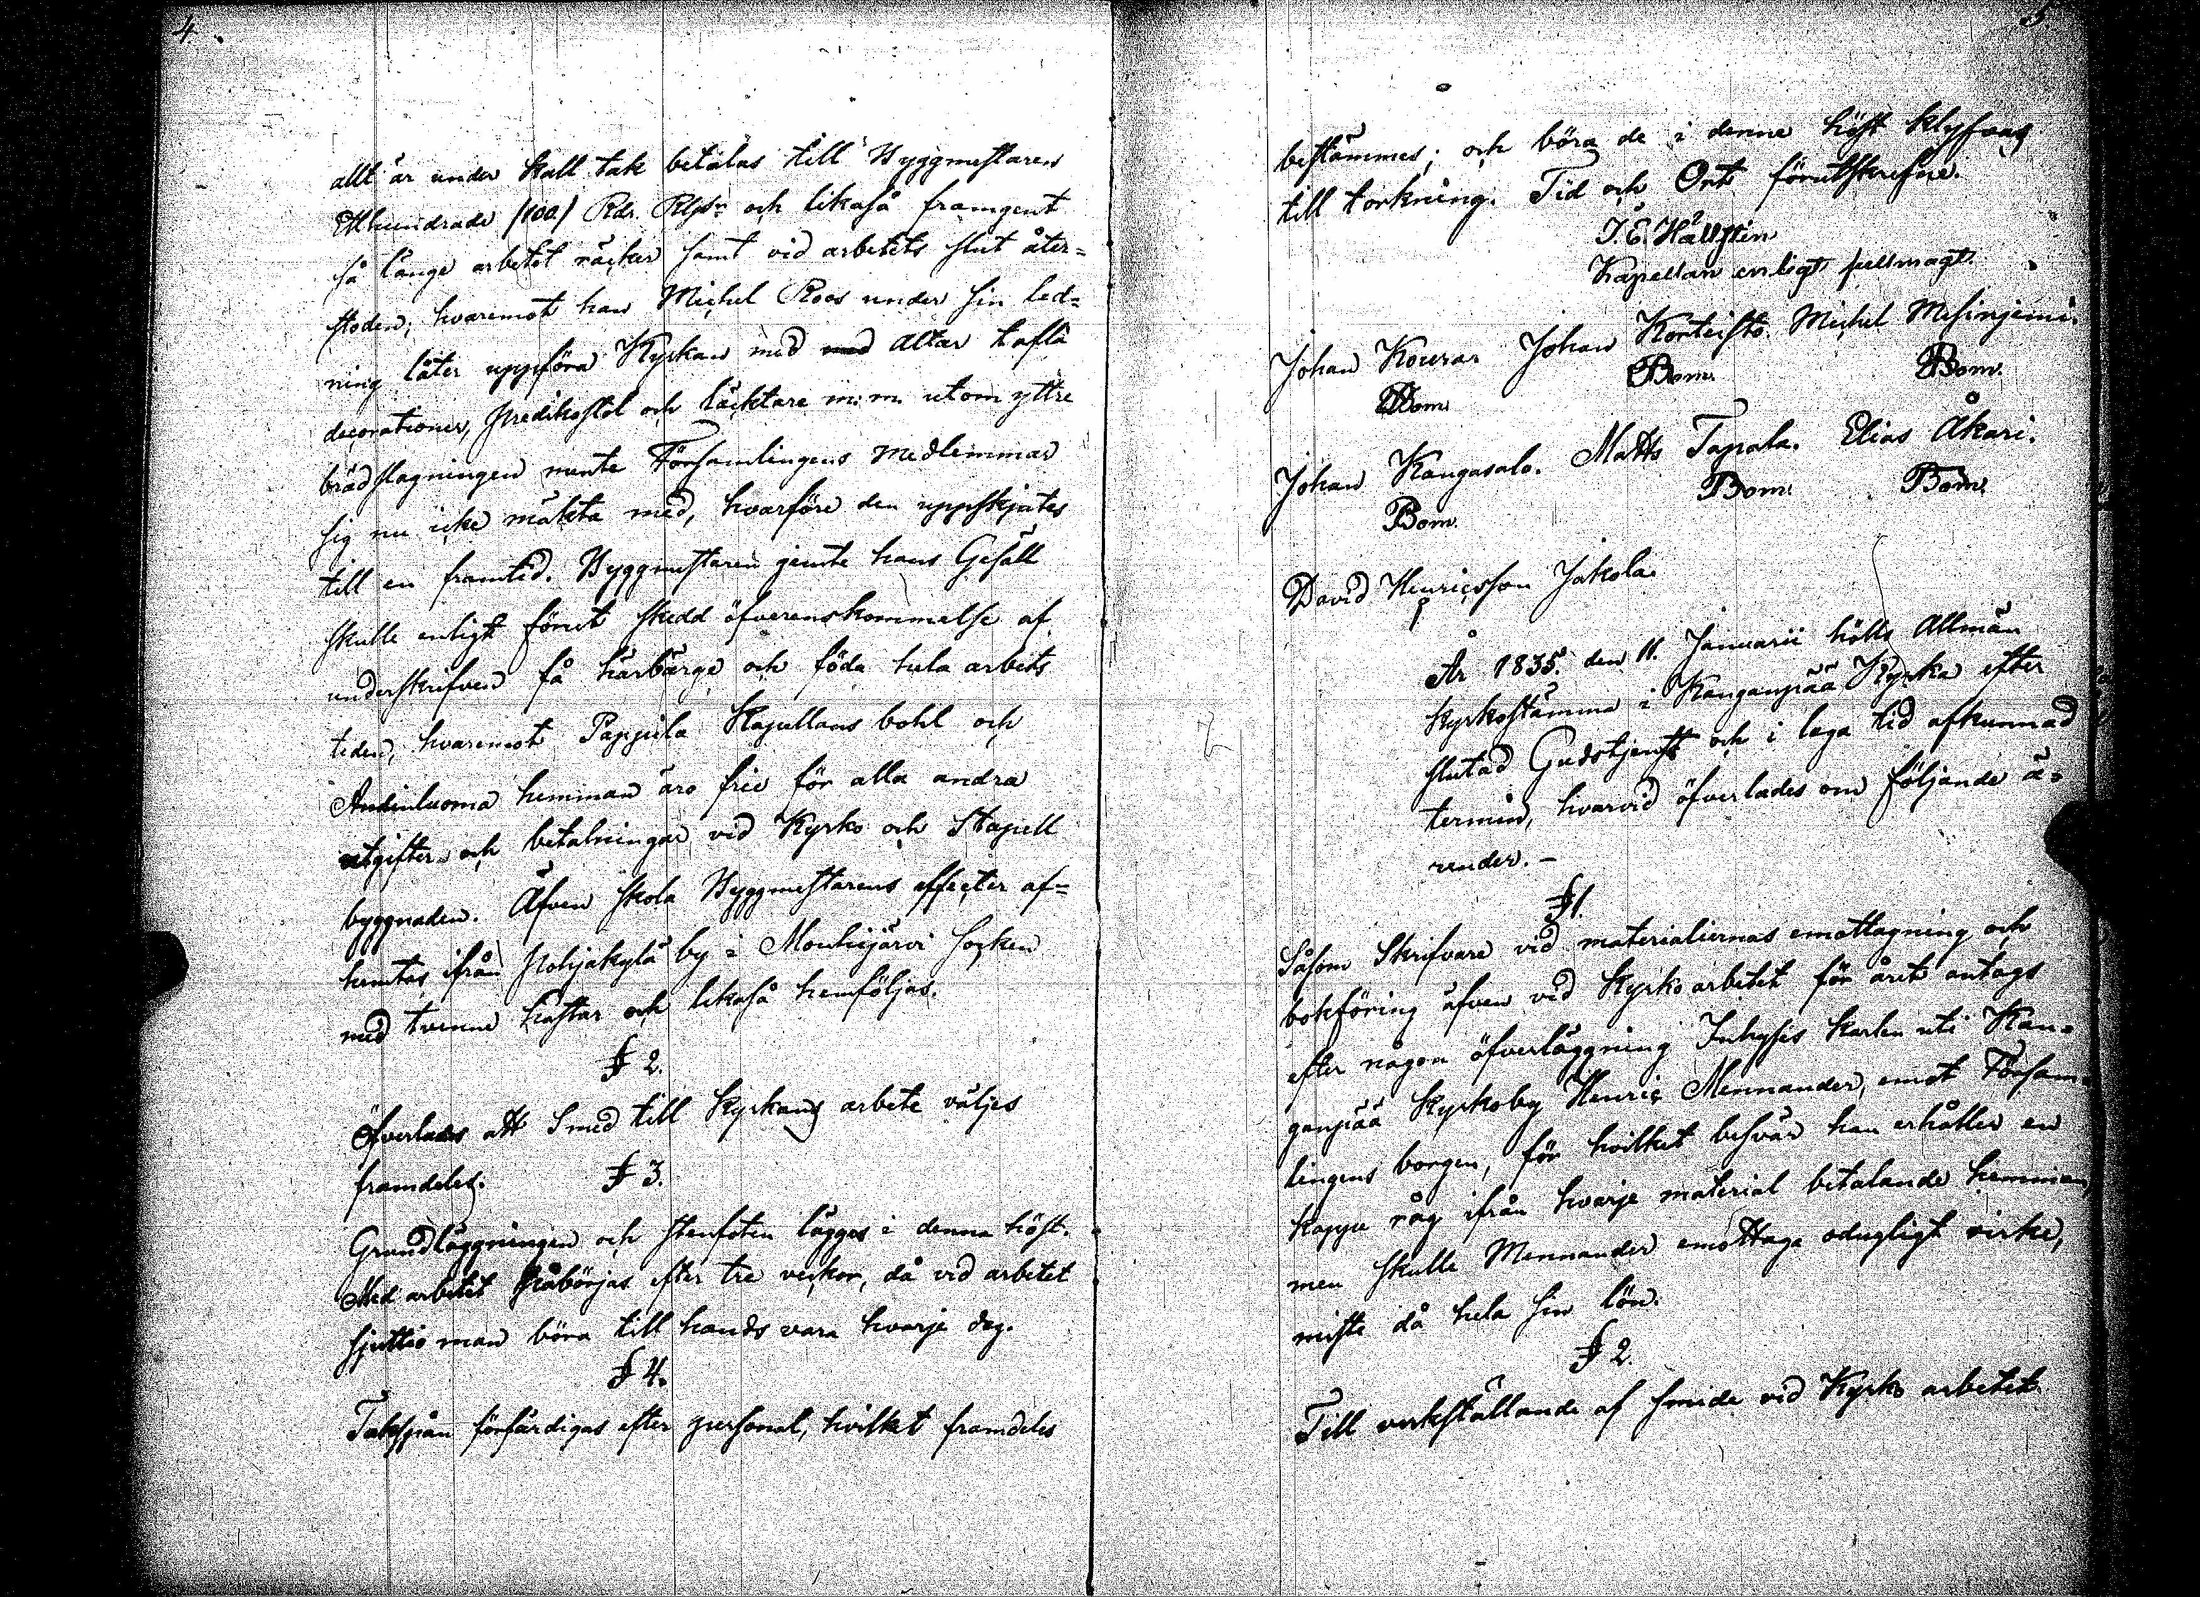 4.
allt är under kall tak betalas till Byggmestaren
Etthundrade /100/ Rdr. Rgsr och likaså framgent
så länge arbetet räcker samt vid arbetets slut åter=
stoden; hvaremot han Michel Roos under sin led=
ning låter uppföra Kyrkan med Altar tafla
decorationer, predikostol och läcktare m: m. utom yttre
brädslagningen mente Församlingens medlemmar
sig nu icke mäkta med, hvarföre den uppskjutes
till en framtid. Byggmestaren jemte hans Gesäll
skulle enligt förut skedd öfverenskommelse af
underskrifven få härbärge och föda hela arbets
tiden, hvaremot Pappila Kapellans bohl och
Andinluoma hemman äro frie för alla andra
utgifter och betalningar vid Kyrko och Stapell
byggnaden. Äfven skola Byggmestarens effecter af=
hemtas ifrån Pohjakylä by i Mouhijärvi Socken
med tvenne hästar och likaså hemföljas.
§ 2.
Öfverlades att Smed till Kyrkans arbete väljes
framdeles.
§ 3.
Grundläggningen och Stenfoten lägges i denna höst.
Med arbetet påbörjas efter tre veckor, då vid arbetet
sjuttio man böra till hands vara hvarje dag.
§ 4.
Takspån förfärdigas efter personal, hvilket framdeles
5
bestämmes; och böra de i denne höst klyfvas
till torkning. Tid och Ort förutskrefne.
J. E. Hällsten
Kapellan enligt fullmagt.
Johan Koura. Johan Korteisto. Michel Mesinjemi.
Bom. Bom. Bom.
Johan Kangasalo. Matts Tapala. Elias Åkari.
Bom. Bom. Bom.
David Henricsson Jakola.
År 1835. den 11. Januarii hölls Allmän
Kyrkostämma i Kanganpää Kyrka efter
slutad Gudstjenst och i laga tid afkunnad
termin, hvarvid öfverlades om följande ä=
render. –
§ 1.
Såsom Skrifvare vid materialiernas emottagning och
bokföring äfven vid Kyrko arbetet för året antags
efter någon öfverläggning Inhyses karlen uti Kan=
ganpää Kyrkoby Henric Mennander, emot Försam=
lingens borgen, för hvilket besvär han erhåller en
kappe råg ifrån hvarje material betalande hemman,
men skulle Mennander emottaga odugligt virke,
miste då hela sin lön.
§ 2.
Till verkställande af smide vid Kyrko arbetet